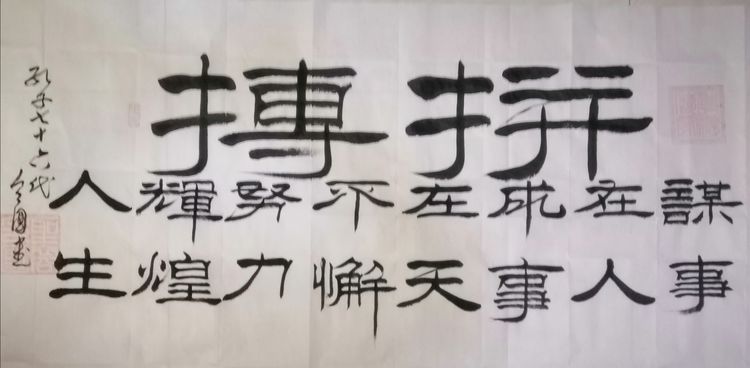 拼搏
謀事
在人
成事
在天
不懈
努力
輝煌
人生
孔子七十六代